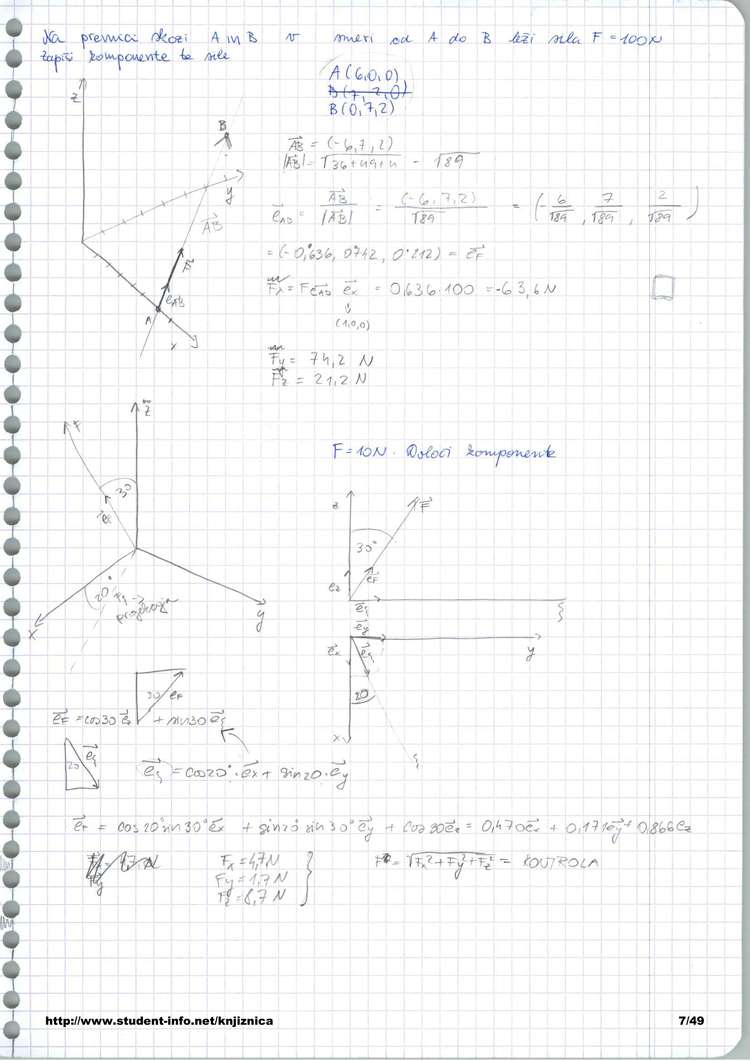 Na premici skozi A in B v smeri od A do B leži sila F = 100N
Zapiši komponente te sile
A(6,0,0)
B(7,2,0)
B(0,7,2)
z
B
y
AB
F
e_AB
A
x
AB = (-6,7,2)
|AB| = √36+49+4 = √89
e_AB = AB / |AB| = (-6,7,2) / √89 = (-6/√89, 7/√89, 2/√89)
= (-0,636, 0,742, 0,212) = e_F
F_x = F e_AB e_x = 0,636·100 = -63,6N
(1,0,0)
F_y = 74,2 N
F_z = 21,2 N
F = 10N. Določi komponente
z
F
30°
e_F
20°
x
y
z
F
30°
e_z
e_F
e_ξ
ξ
e_y
e_x
e_ξ
y
20
x
ξ
30 e_F
e_F = cos30 e_z + sin30 e_ξ
20 e_ξ
e_ξ = cos20°·e_x + sin20·e_y
e_F = cos20°sin30° e_x + sin20° sin30° e_y + cos30 e_z = 0,470e_x + 0,171e_y + 0,866e_z
F_x = 4,7N
F_y = 1,7N
F_z = 8,7N
F = √F_x²+F_y²+F_z² = KONTROLA
http://www.student-info.net/knjiznica
7/49